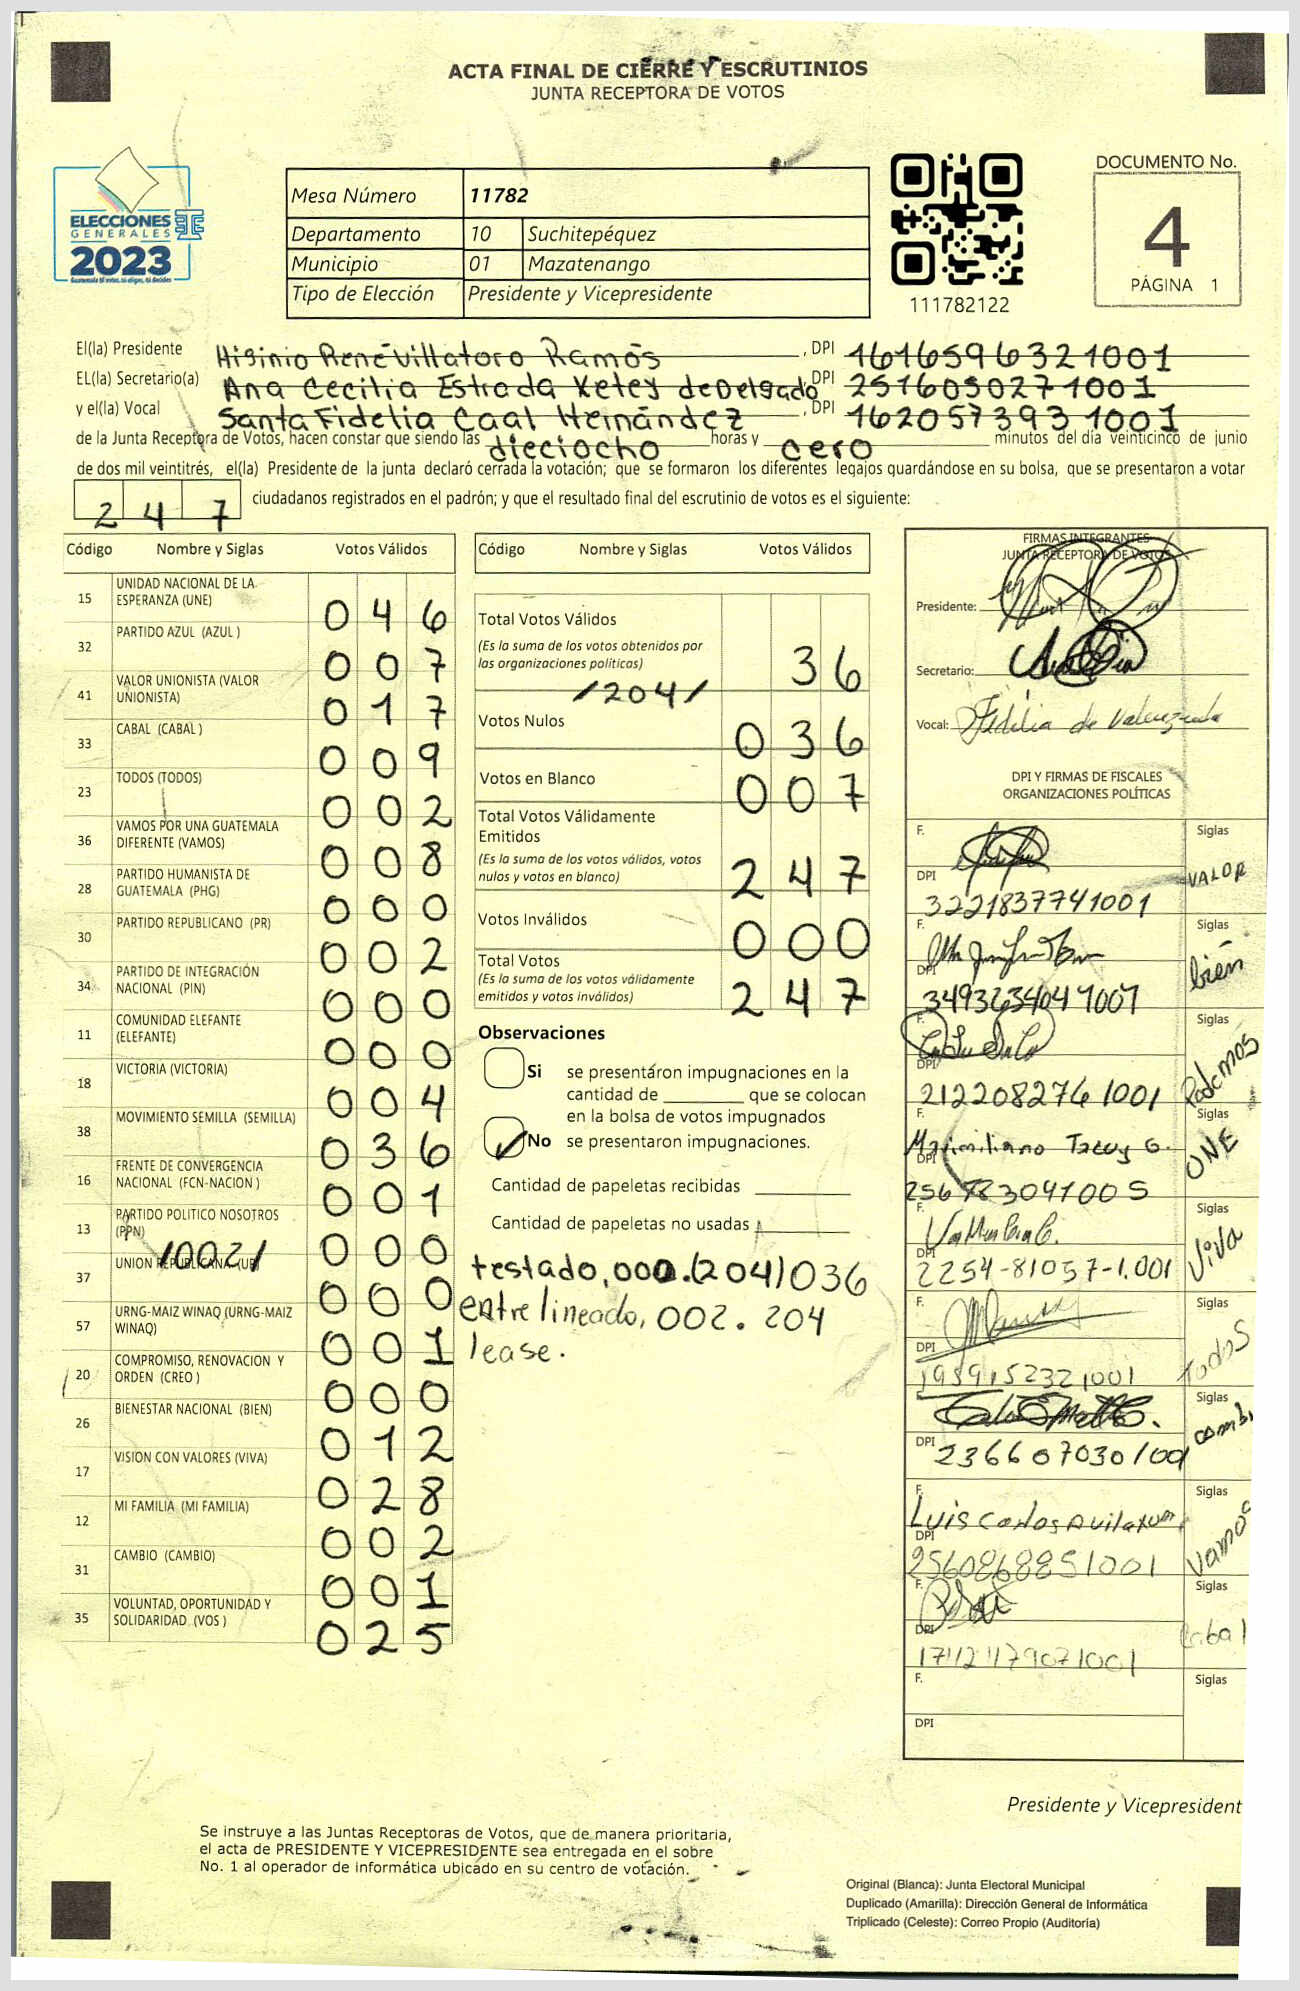 ACTA FINAL DE CIERRE Y ESCRUTINIOS
JUNTA RECEPTORA DE VOTOS
ELECCIONES
GENERALES
2023
Mesa Número 11782
Departamento 10 Suchitepéquez
Municipio 01 Mazatenango
Tipo de Elección Presidente y Vicepresidente
111782122
DOCUMENTO No.
4
PÁGINA 1
El(la) Presidente Higinio René Villatoro Ramos , DPI 1616596321001
EL(la) Secretario(a) Ana Cecilia Estrada Xetey de Delgado DPI 2516050271001
y el(la) Vocal Santa Fidelia Caal Hernández , DPI 1620573931001
de la Junta Receptora de Votos, hacen constar que siendo las dieciocho horas y cero minutos del día veinticinco de junio
de dos mil veintitrés, el(la) Presidente de la junta declaró cerrada la votación; que se formaron los diferentes legajos quardándose en su bolsa, que se presentaron a votar
247 ciudadanos registrados en el padrón; y que el resultado final del escrutinio de votos es el siguiente:
Código Nombre y Siglas Votos Válidos
15 UNIDAD NACIONAL DE LA ESPERANZA (UNE) 046
32 PARTIDO AZUL (AZUL ) 007
41 VALOR UNIONISTA (VALOR UNIONISTA) 017
33 CABAL (CABAL ) 009
23 TODOS (TODOS) 002
36 VAMOS POR UNA GUATEMALA DIFERENTE (VAMOS) 008
28 PARTIDO HUMANISTA DE GUATEMALA (PHG) 000
30 PARTIDO REPUBLICANO (PR) 002
34 PARTIDO DE INTEGRACIÓN NACIONAL (PIN) 000
11 COMUNIDAD ELEFANTE (ELEFANTE) 000
18 VICTORIA (VICTORIA) 004
38 MOVIMIENTO SEMILLA (SEMILLA) 036
16 FRENTE DE CONVERGENCIA NACIONAL (FCN-NACION ) 001
13 PARTIDO POLITICO NOSOTROS (PPN) 000
/002/
37 UNION REPUBLICANA (UR) 000
57 URNG-MAIZ WINAQ (URNG-MAIZ WINAQ) 001
20 COMPROMISO, RENOVACION Y ORDEN (CREO ) 000
26 BIENESTAR NACIONAL (BIEN) 012
17 VISION CON VALORES (VIVA) 028
12 MI FAMILIA (MI FAMILIA) 002
31 CAMBIO (CAMBIO) 001
35 VOLUNTAD, OPORTUNIDAD Y SOLIDARIDAD (VOS ) 025
Código Nombre y Siglas Votos Válidos
Total Votos Válidos
(Es la suma de los votos obtenidos por
las organizaciones políticas) 36
/204/
Votos Nulos 036
Votos en Blanco 007
Total Votos Válidamente
Emitidos
(Es la suma de los votos válidos, votos
nulos y votos en blanco) 247
Votos Inválidos 000
Total Votos
(Es la suma de los votos válidamente
emitidos y votos inválidos) 247
Observaciones
Si se presentáron impugnaciones en la
cantidad de ________ que se colocan
en la bolsa de votos impugnados
No se presentaron impugnaciones.
Cantidad de papeletas recibidas
Cantidad de papeletas no usadas
testado, 000.(204)036
entre lineado, 002. 204
lease.
FIRMAS INTEGRANTES
JUNTA RECEPTORA DE VOTOS
Presidente:
Secretario:
Vocal: Fidelia de Valenzuela
DPI Y FIRMAS DE FISCALES
ORGANIZACIONES POLÍTICAS
F. Siglas
DPI 3221837741001 VALOR
F. Siglas
DPI bién
F. Siglas
DPI 2122082761001 Podemos
F. Maximiliano Siglas
DPI UNE
F. Siglas
DPI 2254-81057-1.001 Viva
F. Siglas
DPI 1959152321001 Todos
Siglas
DPI 236607030100
F. Luis Carlos Siglas
DPI 2560868851001 Vamos
F. Siglas
DPI Cabal
F. Siglas
DPI
Presidente y Vicepresident
Se instruye a las Juntas Receptoras de Votos, que de manera prioritaria,
el acta de PRESIDENTE Y VICEPRESIDENTE sea entregada en el sobre
No. 1 al operador de informática ubicado en su centro de votación.
Original (Blanca): Junta Electoral Municipal
Duplicado (Amarilla): Dirección General de Informática
Triplicado (Celeste): Correo Propio (Auditoría)